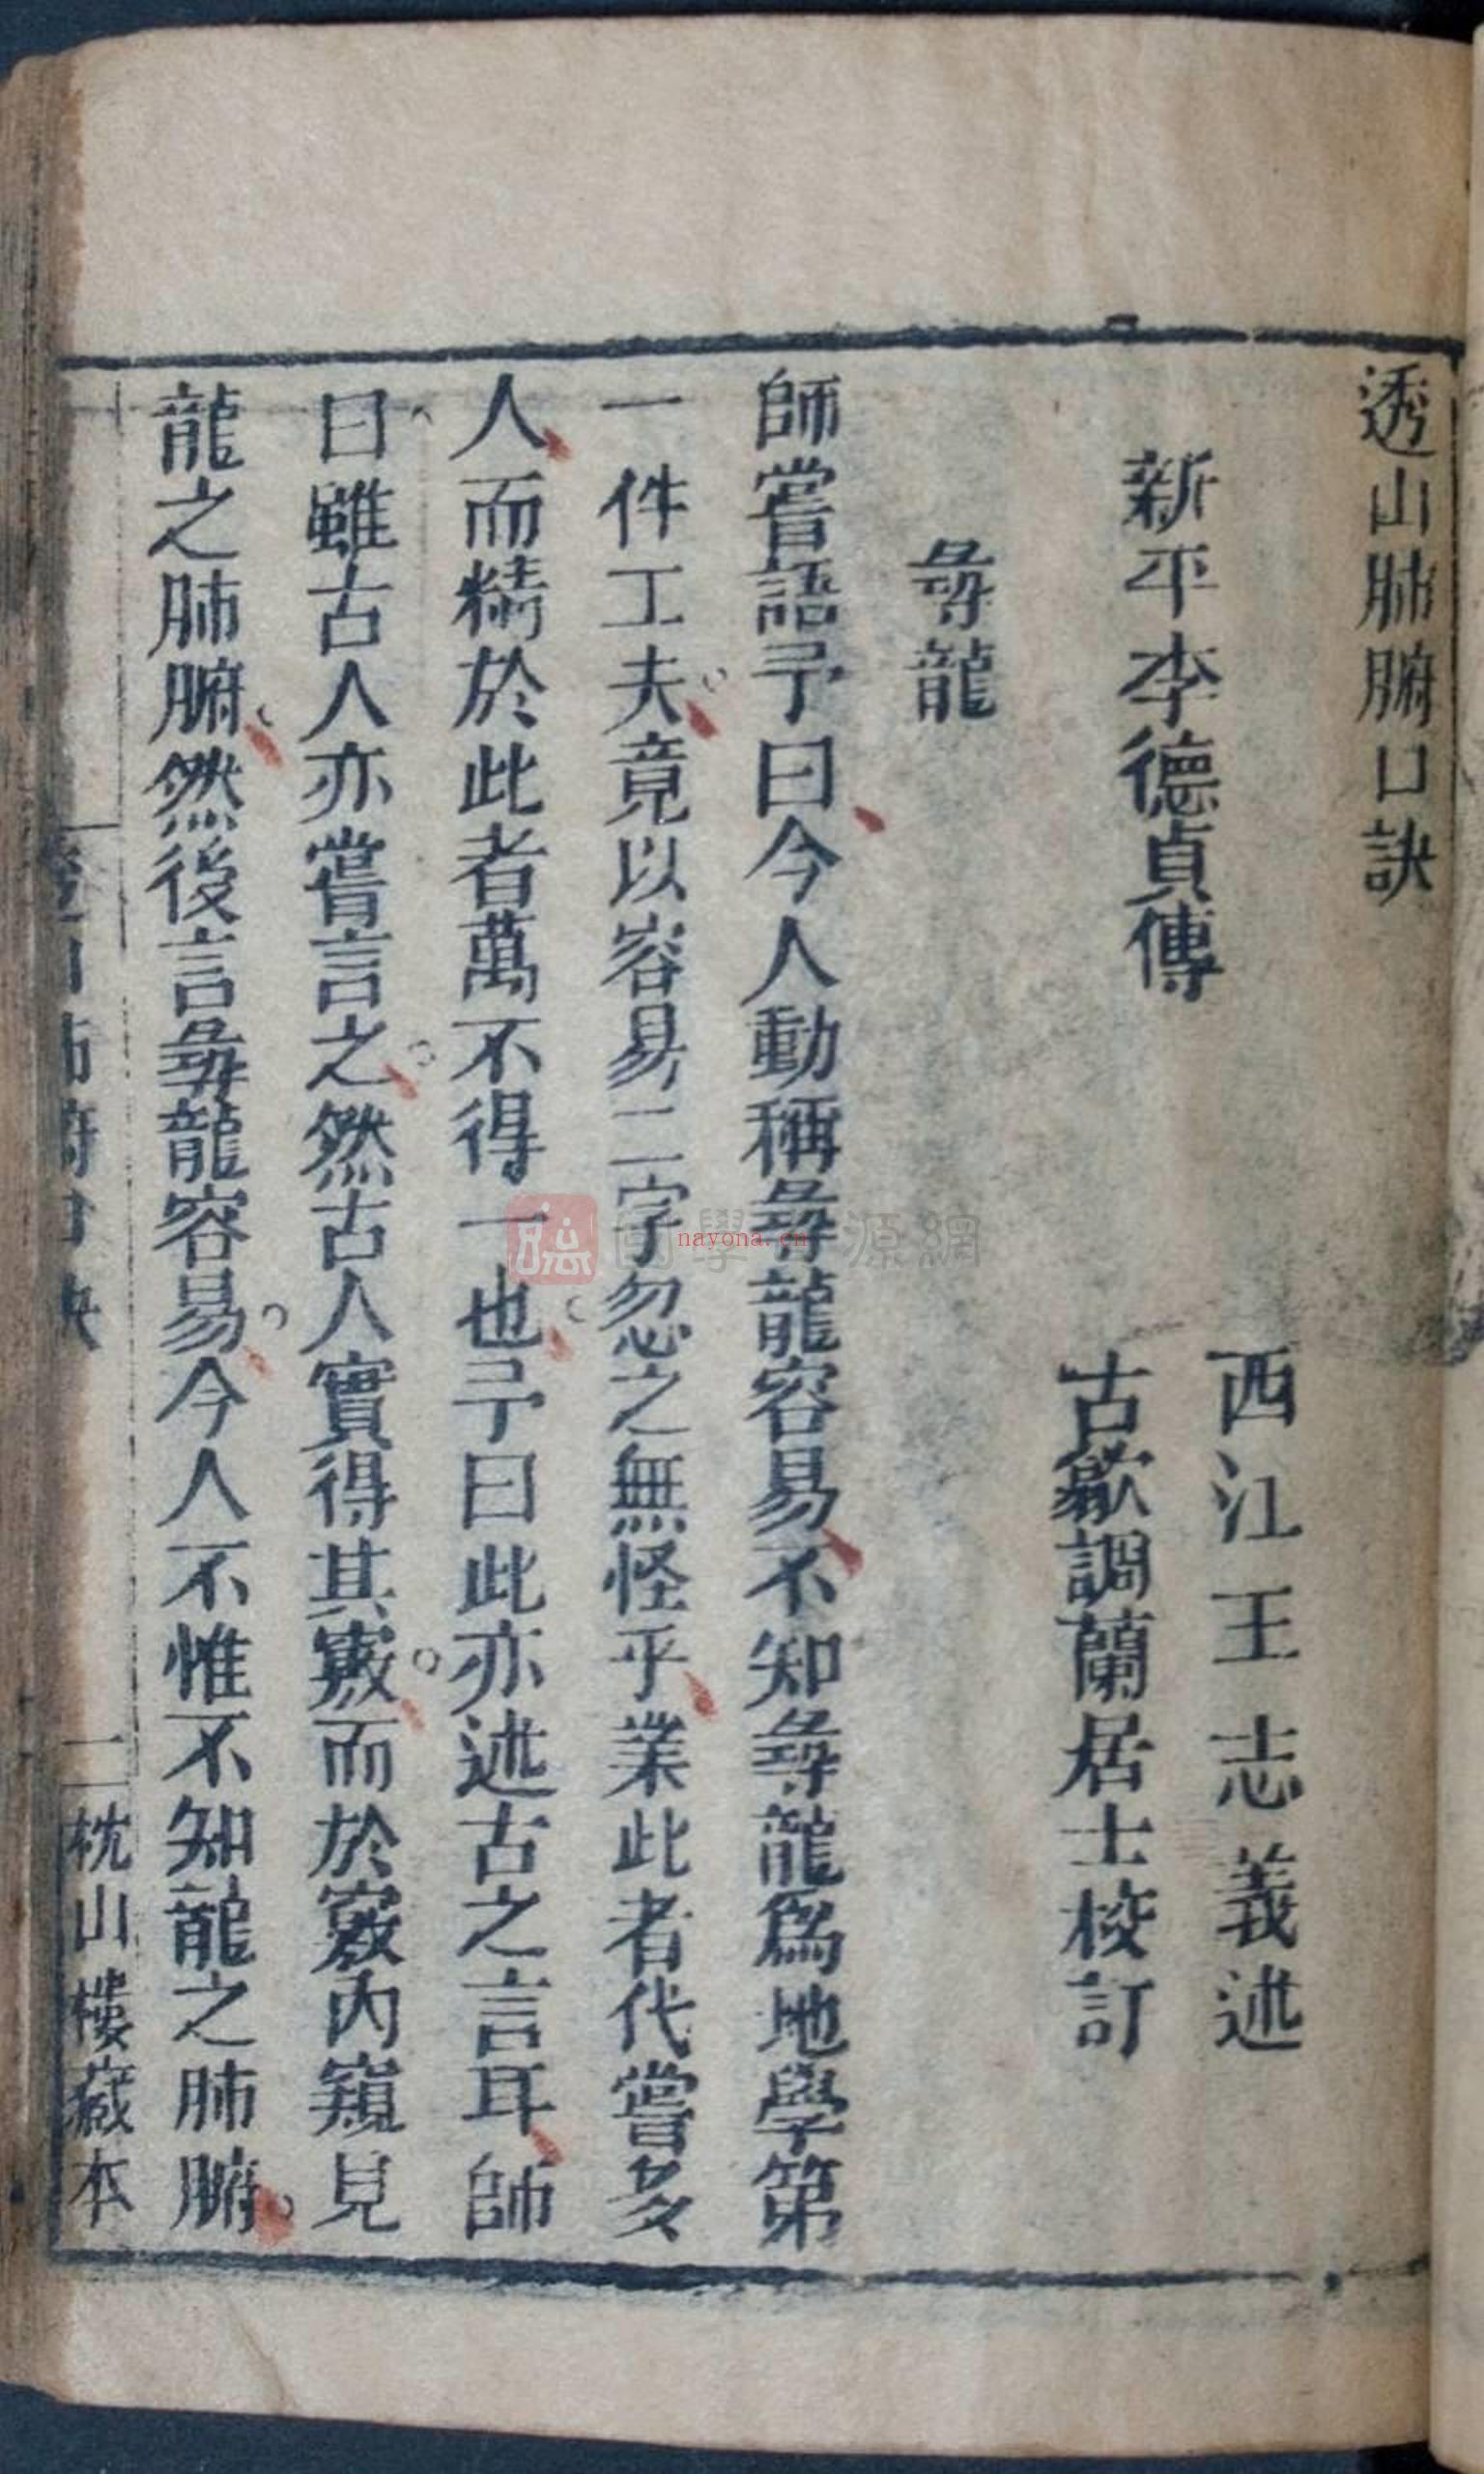 透山肺腑口訣
西江王志義述
新平李德貞傳
古歙調蘭居士校訂
尋龍
師嘗語予曰今人動稱尋龍容易不知尋龍爲地學第
一件工夫竟以容易二字忽之無怪乎業此者代嘗多
人而精於此者萬不得一也予曰此亦述古之言耳師
曰雖古人亦嘗言之然古人實得其竅而於竅內窺見
龍之肺腑然後言尋龍容易今人不惟不知龍之肺腑
透山肺腑口訣
二
枕山樓藏本
國學資源網
nayona.cn